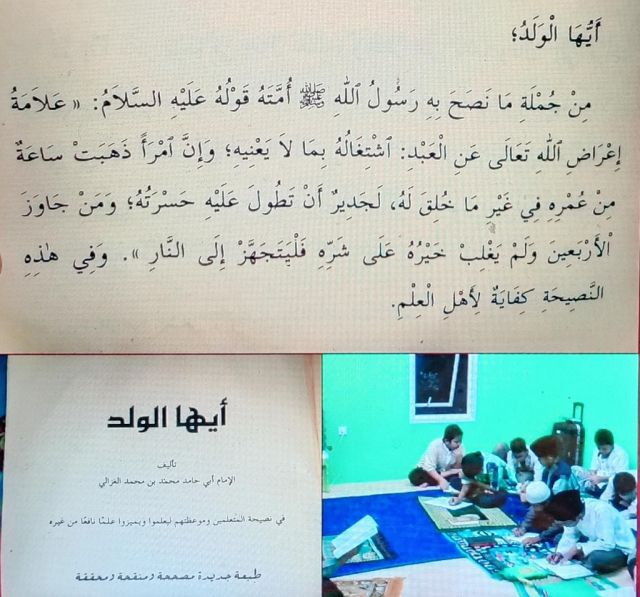 أَيُّهَا الْوَلَدُ؛
مِنْ جُمْلَةِ مَا نَصَحَ بِهِ رَسُولُ ٱللهِ ﷺ أُمَّتَهُ قَوْلُهُ عَلَيْهِ السَّلاَمُ: « عَلاَمَةُ
إِعْرَاضِ ٱللهِ تَعَالَى عَنِ الْعَبْدِ: ٱشْتِغَالُهُ بِمَا لاَ يَعْنِيهِ؛ وَإِنَّ ٱمْرَأً ذَهَبَتْ سَاعَةٌ
مِنْ عُمْرِهِ فِي غَيْرِ مَا خُلِقَ لَهُ، لَجَدِيرٌ أَنْ تَطُولَ عَلَيْهِ حَسْرَتُهُ؛ وَمَنْ جَاوَزَ
الْأَرْبَعِينَ وَلَمْ يَغْلِبْ خَيْرُهُ عَلَى شَرِّهِ فَلْيَتَجَهَّزْ إِلَى النَّارِ ». وَفِي هٰذِهِ
النَّصِيحَةِ كِفَايَةٌ لِأَهْلِ الْعِلْمِ.
أيها الولد
تأليف
الإمام أبي حامد محمد بن محمد الغزالي
في نصيحة المتعلمين وموعظتهم ليعلموا ويميزوا علمًا نافعًا من غيره
طبعة جديدة مصححة ومنقحة ومحققة